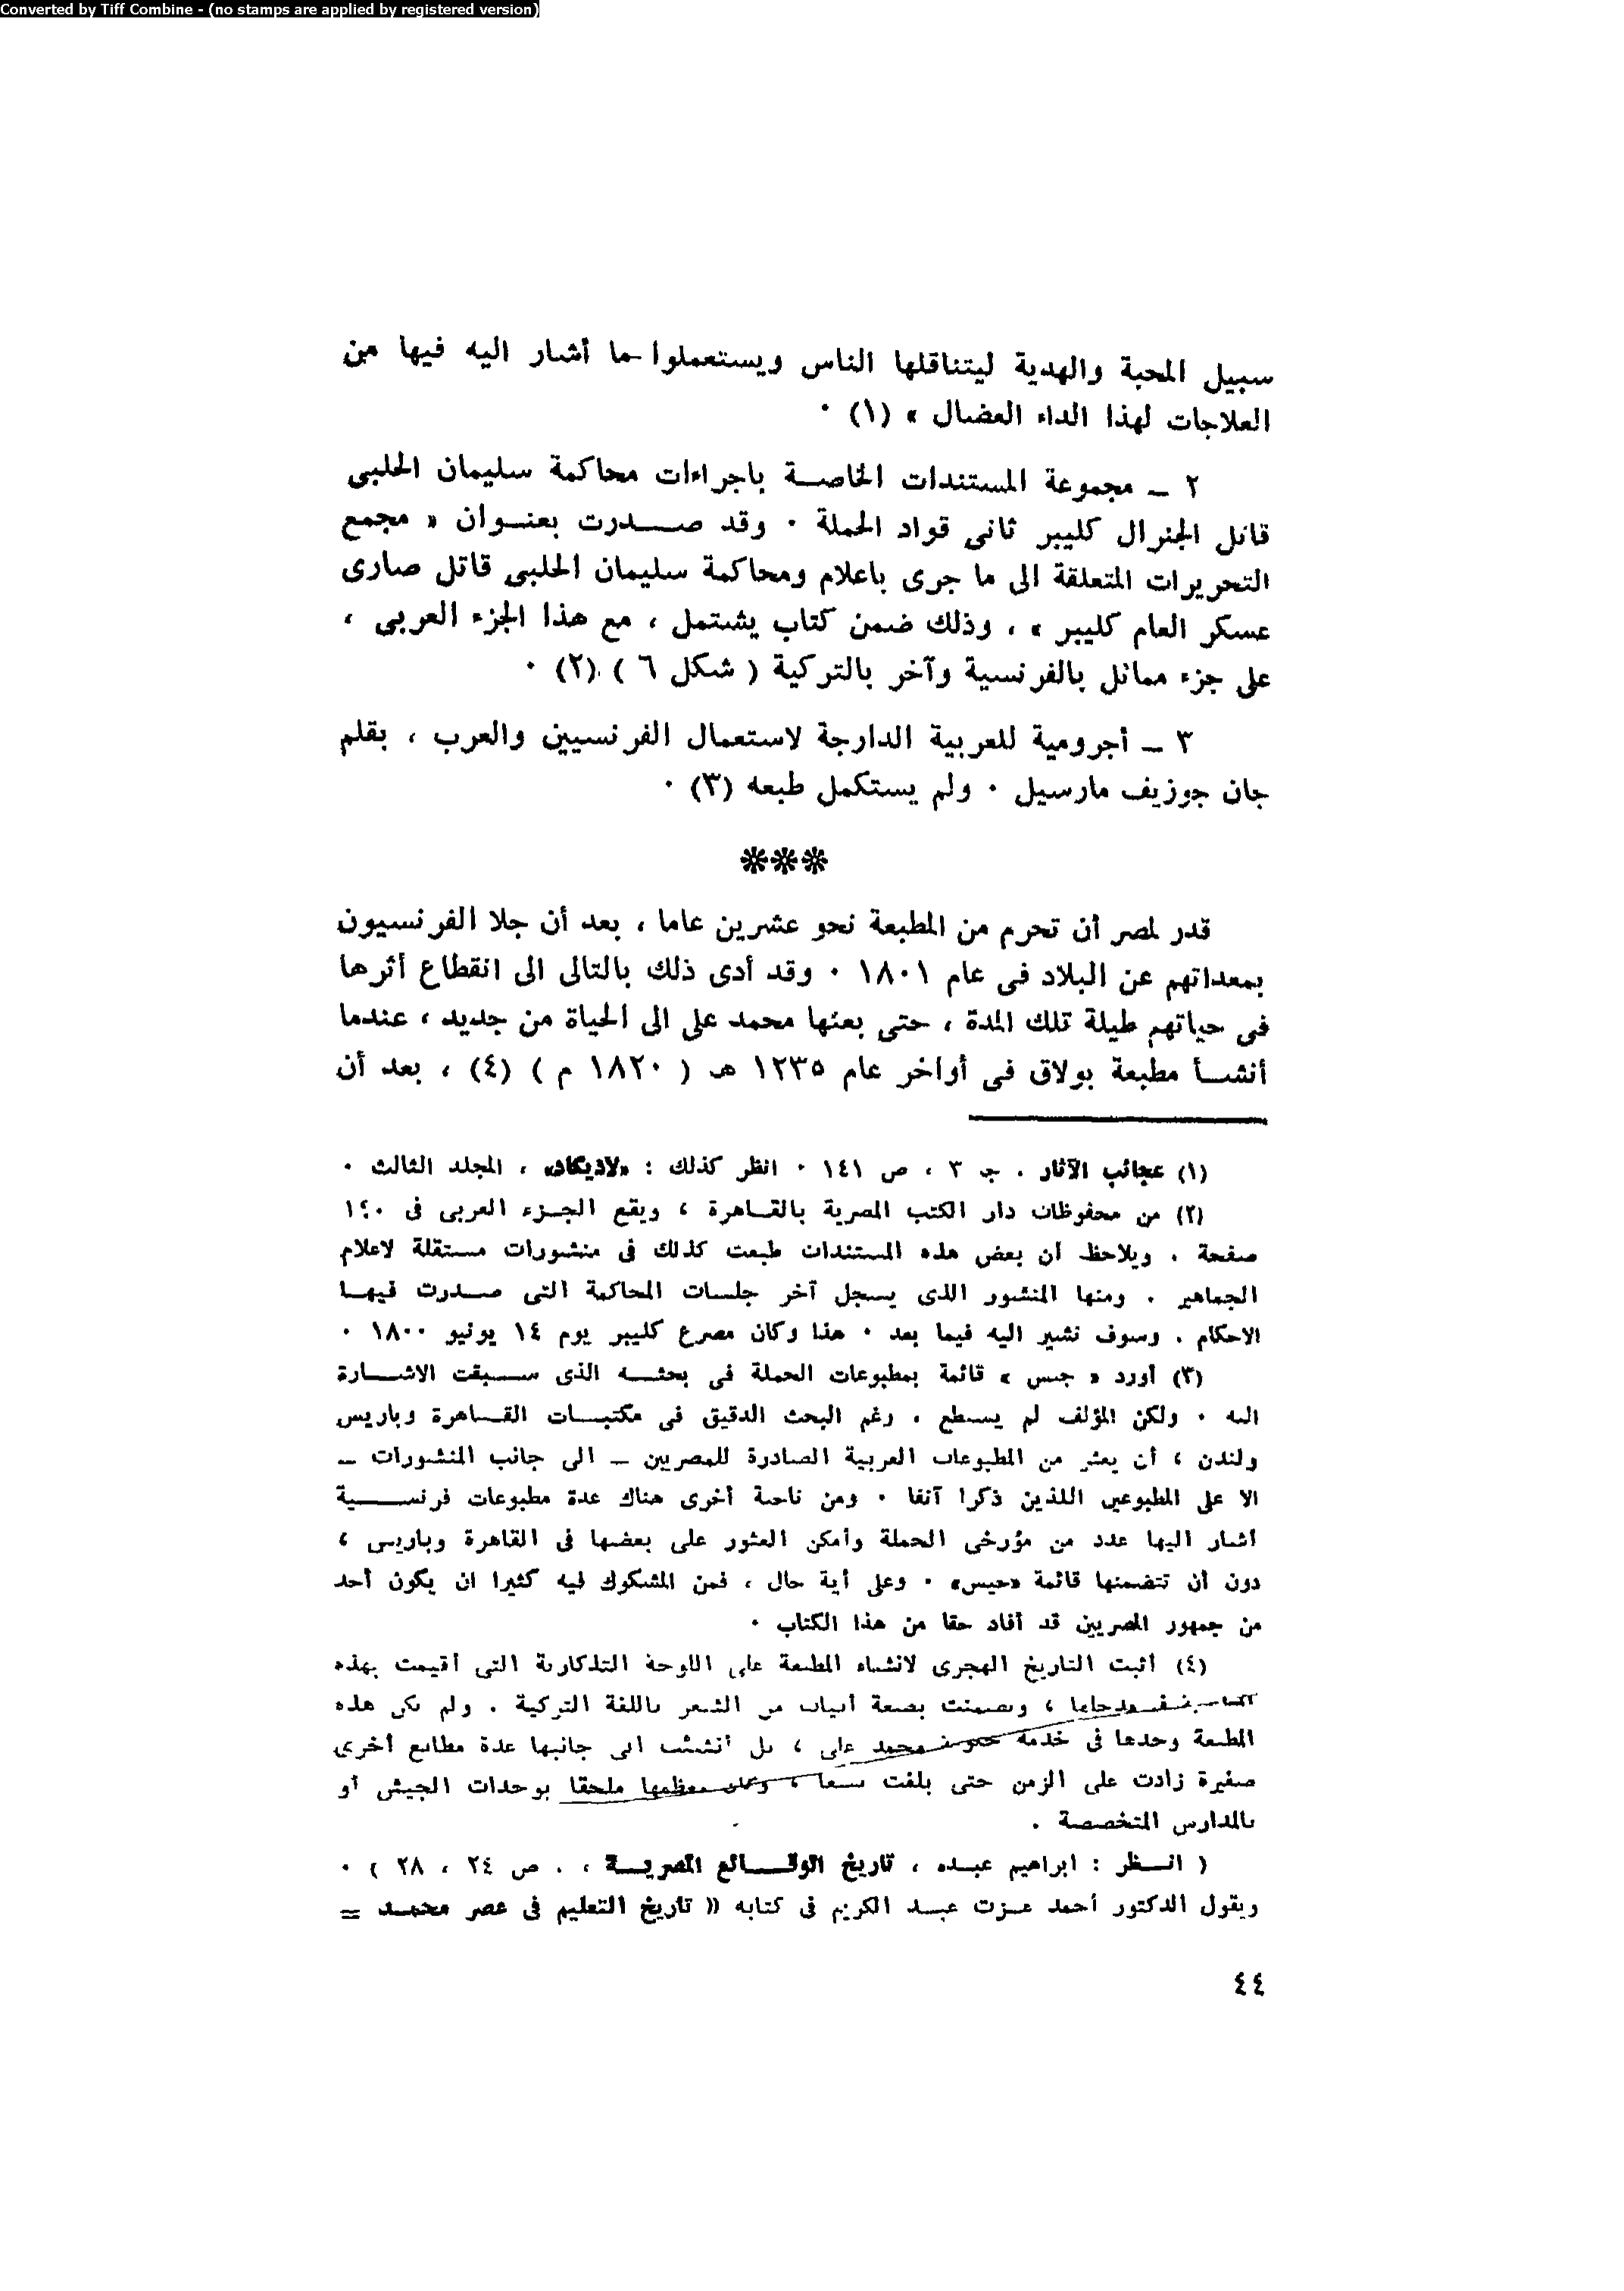 Converted by Tiff Combine - (no stamps are applied by registered version)
سبيل المحبة والهدية ليتناقلها الناس ويستعملوا ما أشار اليه فيها من
العلاجات لهذا الداء العضال » (١) ٠
٢ ـ مجموعة المستندات الخاصة باجراءات محاكمة سليمان الحلبى
قاتل الجنرال كليبر ثانى قواد الحملة ٠ وقد صدرت بعنوان « مجمع
التحريرات المتعلقة الى ما جرى باعلام ومحاكمة سليمان الحلبى قاتل صارى
عسكر العام كليبر » ، وذلك ضمن كتاب يشتمل ، مع هذا الجزء العربى ،
على جزء مماثل بالفرنسية وآخر بالتركية ( شكل ٦ ) (٢) ٠
٣ ـ أجرومية للعربية الدارجة لاستعمال الفرنسيين والعرب ، بقلم
جان جوزيف مارسيل ٠ ولم يستكمل طبعه (٣) ٠
***
قدر لمصر أن تحرم من المطبعة نحو عشرين عاما ، بعد أن جلا الفرنسيون
بمعداتهم عن البلاد فى عام ١٨٠١ ٠ وقد أدى ذلك بالتالى الى انقطاع أثرها
فى حياتهم طيلة تلك المدة ، حتى بعثها محمد على الى الحياة من جديد ، عندما
أنشأ مطبعة بولاق فى أواخر عام ١٢٣٥ هـ ( ١٨٢٠ م ) (٤) ، بعد أن
(١) عجائب الآثار . ج ٣ ، ص ١٤١ ٠ انظر كذلك : «لاديكاد» ، المجلد الثالث ٠
(٢) من محفوظات دار الكتب المصرية بالقاهرة ، ويقع الجزء العربى فى ١٤٠
صفحة . ويلاحظ أن بعض هذه المستندات طبعت كذلك فى منشورات مستقلة لاعلام
الجماهير . ومنها المنشور الذى يسجل آخر جلسات المحاكمة التى صدرت فيها
الاحكام . وسوف نشير اليه فيما بعد ٠ هذا وكان مصرع كليبر يوم ١٤ يونيو ١٨٠٠ ٠
(٣) أورد « جيس » قائمة بمطبوعات الحملة فى بحثه الذى سبقت الاشارة
اليه ٠ ولكن المؤلف لم يستطع ، رغم البحث الدقيق فى مكتبات القاهرة وباريس
ولندن ، أن يعثر من المطبوعات العربية الصادرة للمصريين ـ الى جانب المنشورات ـ
الا على المطبوعين اللذين ذكرا آنفا ٠ ومن ناحية أخرى هناك عدة مطبوعات فرنسية
أشار اليها عدد من مؤرخى الحملة وأمكن العثور على بعضها فى القاهرة وباريس ،
دون أن تتضمنها قائمة «جيس» ٠ وعلى أية حال ، فمن المشكوك فيه كثيرا ان يكون أحد
من جمهور المصريين قد أفاد حقا من هذا الكتاب ٠
(٤) أثبت التاريخ الهجرى لانشاء المطبعة على اللوحة التذكارية التى أقيمت بهذه
، وتضمنت بضعة أبيات من الشعر باللغة التركية . ولم تكن هذه
المطبعة وحدها فى خدمة حكومة محمد على ، بل أنشئت الى جانبها عدة مطابع أخرى
صغيرة زادت على الزمن حتى بلغت تسعا ، وكان معظمها ملحقا بوحدات الجيش أو
بالمدارس المتخصصة .
( انظر : ابراهيم عبده ، تاريخ الوقائع المصرية ، . ص ٢٤ ، ٢٨ ) ٠
ويقول الدكتور أحمد عزت عبد الكريم فى كتابه (( تاريخ التعليم فى عصر محمد =
٤٤